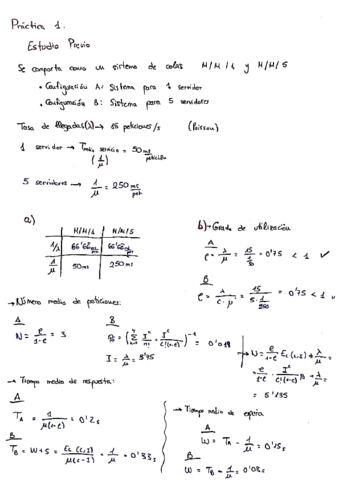 Práctica 1.
Estudio Previo
Se comporta como un sistema de colas M/M/1 y M/M/5
• Configuración A: Sistema para 1 servidor
• Configuración B: Sistema para 5 servidores
Tasa de llegadas(λ) → 15 peticiones/s (Poisson)
1 servidor → T servicio = 50 ms/petición
(1/μ)
5 servidores → 1/μ = 250 ms/pet
a)
M/M/1 M/M/5
1/λ 66'6 66'6
1/μ 50ms 250ms
b) → Grado de utilización
A
ρ = λ/μ = 15/ = 0'75 < 1 ✓
B
ρ = λ/(c·μ) = 15/ = 0'75 < 1 ✓
→ Número medio de peticiones:
A
N = ρ/(1-ρ) = 3
B
I = λ/μ = 3'75
→ N = ρ/(1-ρ) Ec(c,I) + λ/μ =
→ Tiempo medio de respuesta:
A
T_A = 1/(μ(1-ρ)) = 0'2s
B
T_B = W+S = Ec(c,I)/(μ(c-I)) + 1/μ = 0'33s
→ Tiempo medio de espera
A
W = T_A - 1/μ = 0'15s
B
W = T_B - 1/μ = 0'08s